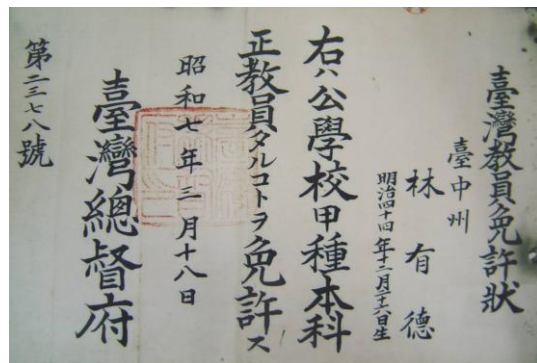 臺灣教員免許狀
臺中州
林有德
明治四十四年十二月二十六日生
右ハ公學校甲種本科
正教員タルコトヲ免許ス
昭和七年三月十八日
臺灣總督府
第二三七八號